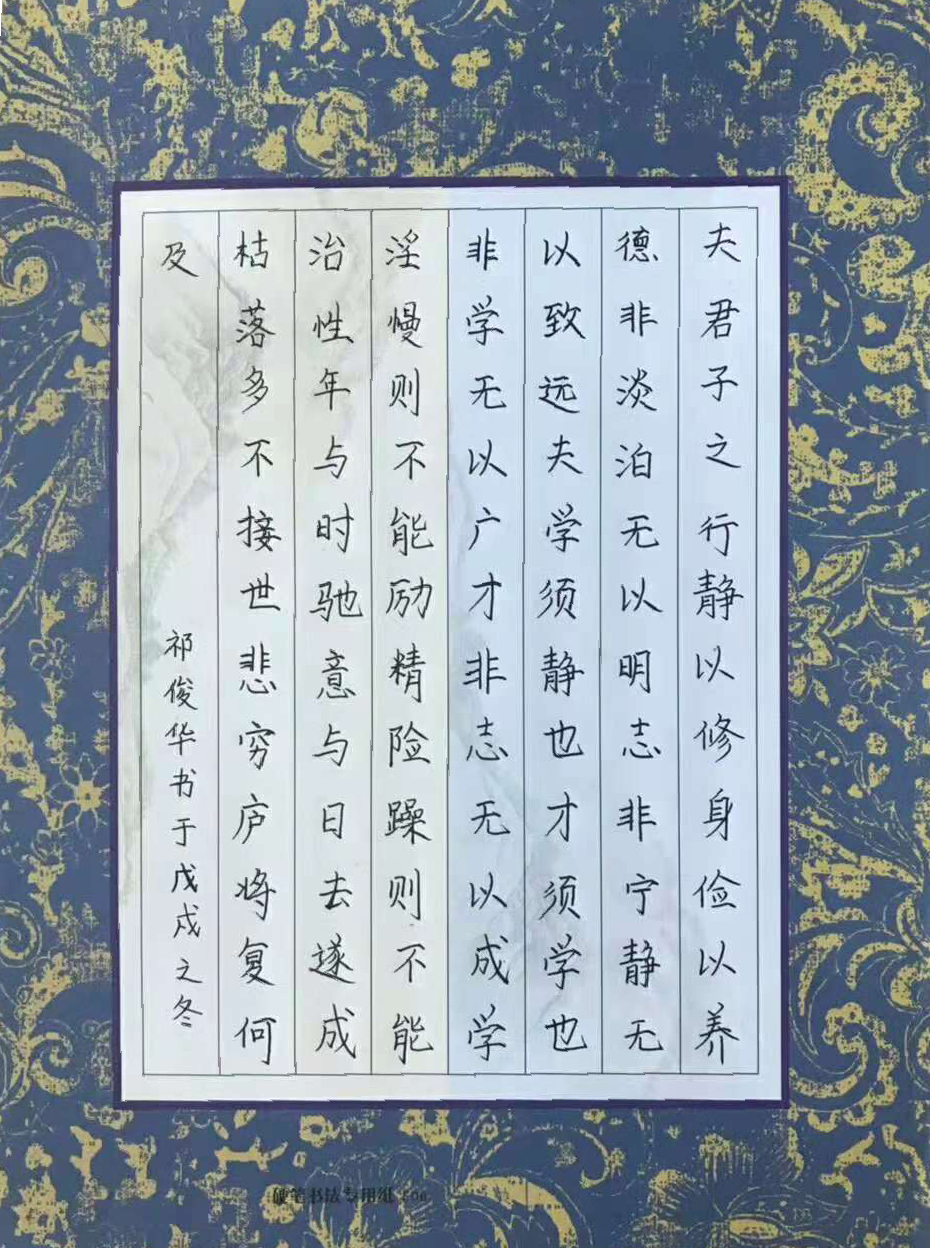 夫君子之行静以修身俭以养
德非淡泊无以明志非宁静无
以致远夫学须静也才须学也
非学无以广才非志无以成学
淫慢则不能励精险躁则不能
治性年与时驰意与日去遂成
枯落多不接世悲穷庐将复何
及
祁俊华书于戊戌之冬
硬笔书法专用纸